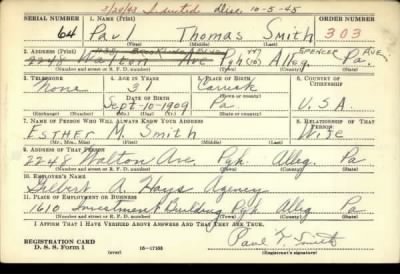 2/20/43 Inducted Disc. 10-5-45
SERIAL NUMBER 1. NAME (Print) ORDER NUMBER
64 Paul Thomas Smith 303
(First) (Middle) (Last)
2. ADDRESS (Print) SPENCER AVE
2248 Walton Ave Pgh (10) Alleg. Pa.
(Number and street or R. F. D. number) (Town) (County) (State)
3. TELEPHONE 4. AGE IN YEARS 5. PLACE OF BIRTH 6. COUNTRY OF CITIZENSHIP
None 31 Carrick
DATE OF BIRTH (Town or county)
Sept-10-1909 Pa U.S.A.
(Exchange) (Number) (Mo.) (Day) (Yr.) (State or country)
7. NAME OF PERSON WHO WILL ALWAYS KNOW YOUR ADDRESS 8. RELATIONSHIP OF THAT PERSON
Esther M. Smith Wife
(Mr., Mrs., Miss) (First) (Middle) (Last)
9. ADDRESS OF THAT PERSON
2248 Walton Ave. Pgh. Alleg. Pa
(Number and street or R. F. D. number) (Town) (County) (State)
10. EMPLOYER'S NAME
Gilbert A. Hays Agency
11. PLACE OF EMPLOYMENT OR BUSINESS
1610 Investment Building Pgh Alleg Pa
(Number and street or R. F. D. number) (Town) (County) (State)
I AFFIRM THAT I HAVE VERIFIED ABOVE ANSWERS AND THAT THEY ARE TRUE.
REGISTRATION CARD
D. S. S. Form 1 (over) 16-17105 Paul T. Smith
(Registrant's signature)